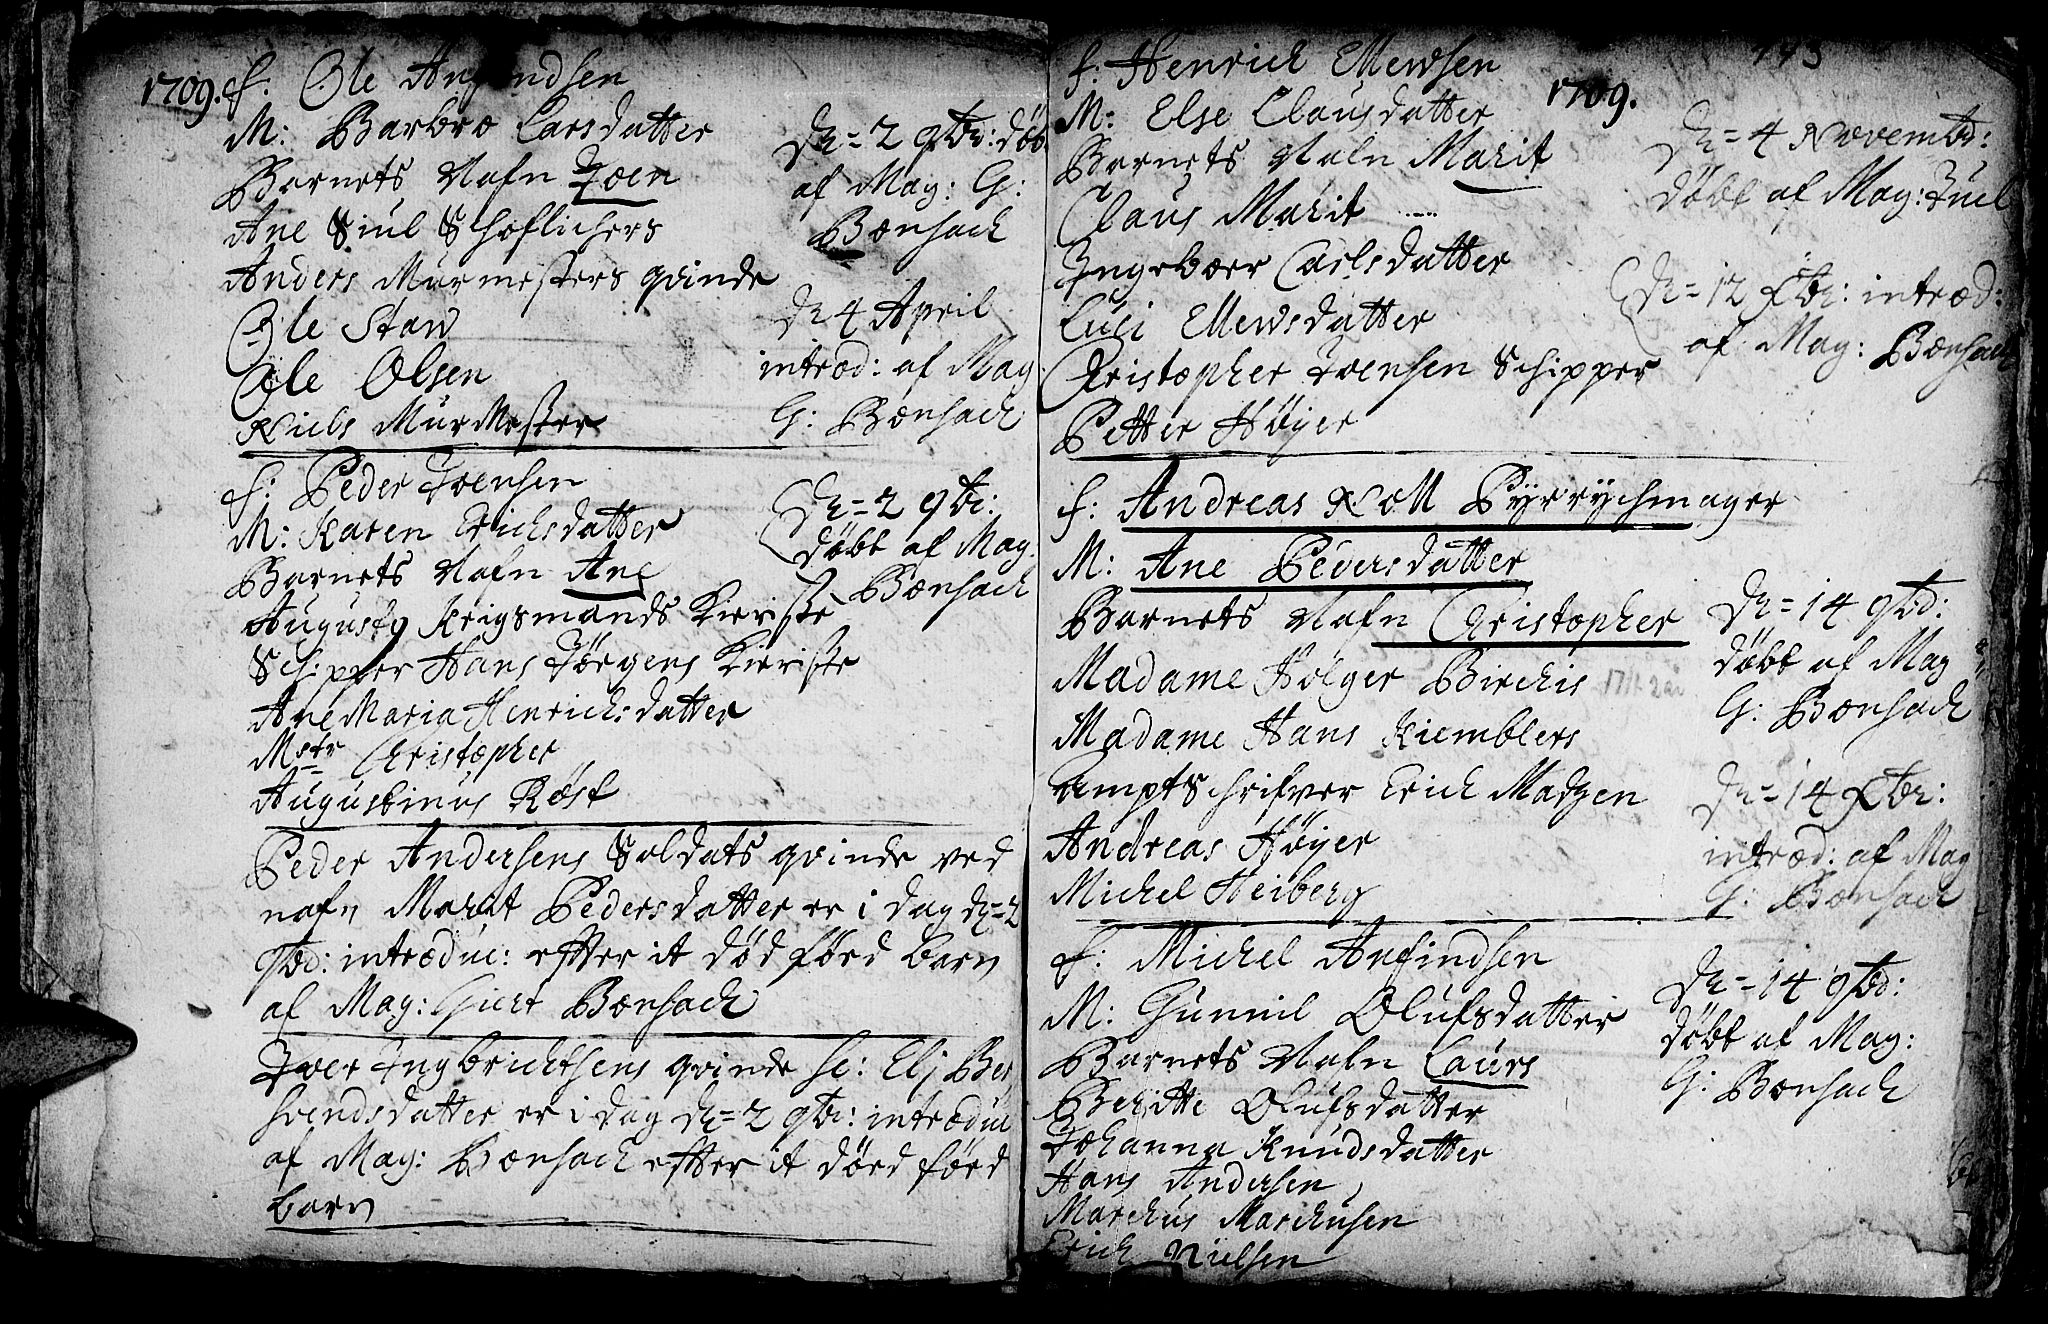 1709. f: Ole Amundsen
M: Barbro Larsdatter
Barnets Nafn Joen
Ane Siul Schoflichers
Anders Murmesters qvinde
Ole Staw
Ole Olsen
Niels MurMester
D: = 2 9br: döb
af Mag: G:
Bonsach
D 4 April
introd: af Mag
G: Bonsach
f: Peder Joensen
M: Karen Erichsdatter
Barnets Nafn Ane
August9 Krigsmands Kieriste
Schipper Hans Jörgens Kieriste
Ane Maria Henrichsdatter
Mstr Christopher
Augustinus Röst
D: = 2 9br:
döbt af Mag:
Bonsach
Peder Andersens Soldats qvinde ved
nafn Marit Pedersdatter er i dag d: = 2
9bd: introduc: effter it död förd barn
af Mag: Giert Bonsach
Iver Ingbrichtsens qvinde sc: Elj Ber
svendsdatter er i dag d: = 2 9br: introduc
af Mag: Bonsach effter it dörd förd
barn
143
f: Henrich Mewsen
M: Else Clausdatter
1709.
Barnets Nafn Marit
Claus Marit
Ingeboer Carlsdatter
Luci Mewsdatter
Christopher Joensen Schipper
Petter Höyer
D: = 4 Novembr:
döbt af Mag: Juel
D: = 12 Xbr: introd:
af Mag: Bonsach
f: Andreas Noll Pÿrrÿchmager
M: Ane Pedersdatter
Barnets Nafn Christopher
Madame Holger Birchis
Madame Hans Kiemblers
Ampt Schrifver Erich Madzen
Andreas Höyer
Michel Heiberg
D: = 14 9bd:
döbt af Mag
G: Bonsach
D: = 14 Xbr:
introd: af Mag
G: Bonsach
f: Michel Anfindsen
M: Gunnil Olufsdatter
Barnets Nafn Laurs
Beritte Olufsdatter
Johanna Knudsdatter
Hans Andersen
Marchus Marchusen
Erich Nielsen
D: = 14 9bd:
döbt af Mag:
G: Bonsach